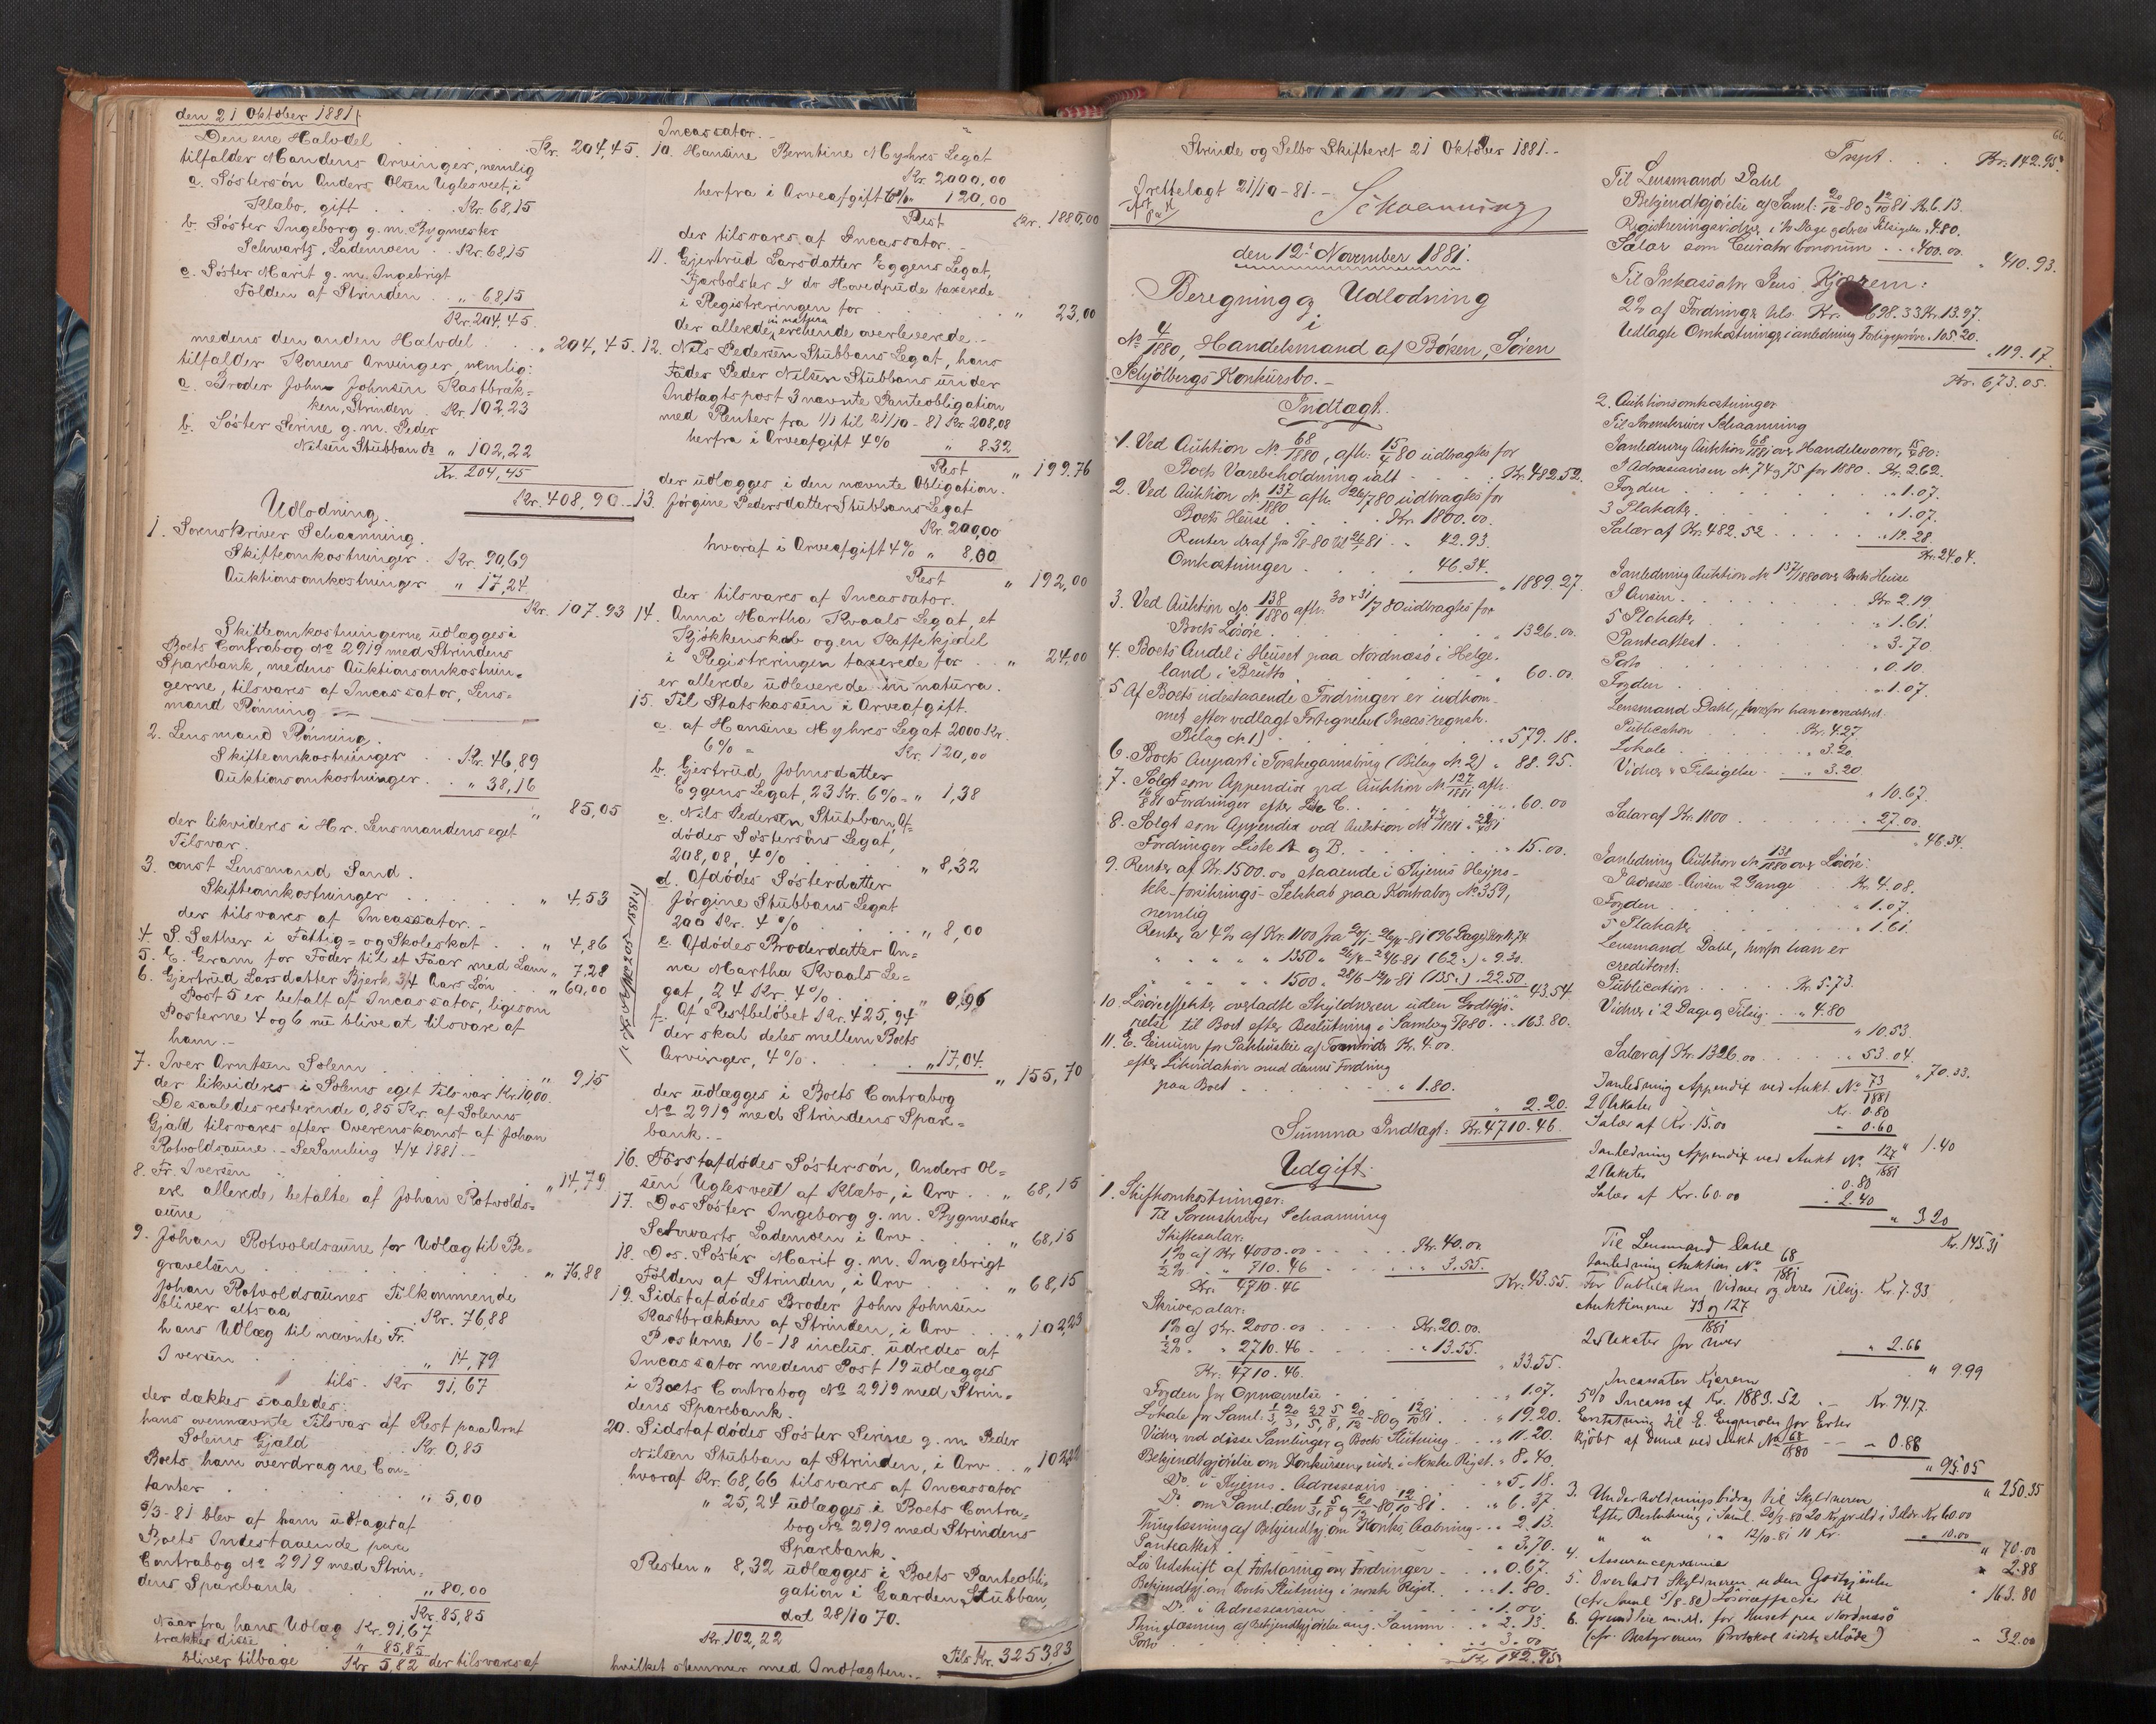 den 21 Oktober 1881.
Den ene Halvdel . . Kr. 204,45.
tilfalder Mandens Arvinger, nemlig
a. Søstersøn Anders Olsen Uglesveet, i
Klæbo, gift . . . Kr. 68,15
b. Søster Ingeborg g. m. Bygmester
Schwartz, Lademoen . Kr. 68,15
c. Søster Marit g. m. Ingebrigt
Folden af Strinden . . " 68,15
Kr. 204,45.
medens den anden Halvdel . . . " 204,45.
tilfalder Konens Arvinger, nemlig:
a. Broder John Johnsen Kastbræk=
ken, Strinden . Kr. 102,23
b. Søster Serine g. m. Peder
Nilsen Stubban do " 102,22
Kr. 204,45
Kr. 408,90
Udlodning.
1. Sorenskriver Schaanning.
Skifteomkostninger . Kr. 90,69
Auktionsomkostninger . " 17,24
Kr. 107.93
Skifteomkostningerne udlægges i
Boets Contrabog No 2919 med Strindens
Sparebank, medens Auktionsomkostnin=
gerne, tilsvares af Incassator, Lens=
mand Røming
2. Lensmand Røming.
Skifteomkostninger . . Kr. 46,89
Auktionsomkostninger . . " 38,16
" 85,05
der likvideres i Hr. Lensmandens eget
Tilsvar.
3. const Lensmand Sand.
Skifteomkostninger . . . . " 4,53
der tilsvares af Incassator.
4. S. Sæther i Fattig= og Skoleskat . . " 4,86
5. E. Gram for Foder til et Faar med Lam " 7,28
6. Gjertrud Larsdatter Bjerk 3/4 Aars Løn . " 60,00
Post 5 er betalt af Incassator, ligesom
Posterne 4 og 6 nu blive at tilsvare af
ham.
7. Iver Arntsen Solem . . . . " 9,15
der likvideres i Solems eget Tilsvar Kr. 10,00.
De saaledes resterende 0,85 Kr. af Solems
Gjæld tilsvares efter Overenskomst af Johan
Rotvoldsaune. - Se Samling 4/4 1881.
8. Fr. Iversen . . . . " 14,79
ere allerede betalte af Johan Rotvolds=
aune
9. Johan Rotvoldsaune for Udlæg til Be=
gravelsen . . . . " 76,88
Johan Rotvoldsaunes Tilkommende
bliver altsaa . . Kr. 76,88
hans Udlæg til nævnte Fr.
Iversen . . . " 14,79
tils. Kr 91,67
der dækkes saaledes:
hans ovennævnte Tilsvar af Rest paa Arnt
Solems Gjæld . . Kr. 0,85
Boets ham overdragne Con=
tanter . . . " 5,00
5/3-81 blev af ham udtaget af
Boets Indestaaende paa
Contrabog No 2919 med Strin=
dens Sparebank . . " 80,00
Kr. 85,85
Naar fra hans Udlæg Kr. 91,67
trækkes disse . . " 85,85
bliver tilbage Kr 5,82 der tilsvares af
Incassator.
10. Hansine Berntine Myhres Legat
Kr. 2000,00
herfra i Arveafgift 6% " 120,00
Rest Kr. 1880,00
der tilsvares af Incassator.
11. Gjertrud Larsdatter Eggens Legat,
Fjærbolster & do Hovedpude taxerede
i Registreringen for . . . " 23,00
der allerede in natura ere hende overleverede.
12. Nils Pedersen Stubbans Legat, hans
Fader Peder Nilsen Stubbans under
Indtægtspost 3 nævnte Panteobligation
med Renter fra 1/1 til 21/10 - 81 Kr. 208,08
herfra i Arveafgift 4% " 8.32
Rest " 199.76
der udlægges i den nævnte Obligation.
13. Jørgine Pedersdatter Stubbans Legat
Kr. 200,00
hvoraf i Arveafgift 4% " 8,00
Rest " 192,00
der tilsvares af Incassator.
14. Anna Martha Kvaals Legat, et
Kjøkkenskab og en Kaffekjedel
i Registreringen taxerede for . . " 24,00
er allerede udleverede in natura.
15. Til Statskassen i Arveafgift.
a. af Hansine Myhres Legat 2000 Kr.
6% = Kr. 120,00
b. Gjertrud Johnsdatter
Eggens Legat, 23 Kr. 6% = " 1,38
c. Nils Pedersen Stubban, Af=
dødes Søstersøns Legat,
208,08, 4% . . . " 8,32
d. Afdødes Søsterdatter
Jørgine Stubbans Legat
200 Kr. 4% . . . " 8,00
e. Afdødes Broderdatter An=
na Martha Kvaals Le=
gat, 24 Kr. 4% . . " 0,96
f. Af Restbeløbet Kr. 425,94
der skal deles mellem Boets
Arvinger, 4% . . . " 17,04.
" 155,70
der udlægges i Boets Contrabog
No 2919 med Strindens Spare=
bank.
16. Førstafdødes Søstersøn, Anders Ol=
sen Uglesveet af Klæbo, i Arv . . " 68,15
17. Dos Søster Ingeborg g. m. Bygmester
Schwartz, Lademoen i Arv . . . " 68,15
18. Dos. Søster Marit g. m. Ingebrigt
Folden af Strinden, i Arv . . . " 68,15
19. Sidstafdødes Broder John Johnsen
Kastbrækken af Strinden, i Arv . . " 102,23
Posterne 16-18 inclus. udredes af
Incassator medens Post 19 udlægges
i Boets Contrabog No 2919 med Strin=
dens Sparebank.
20. Sidstafdødes Søster Serine g. m. Peder
Nilsen Stubban af Strinden, i Arv . . " 102,22
hvoraf Kr. 68,66 tilsvares af Incassator
" 25,24 udlægges i Boets Contra=
bog No 2919 med Strindens
Sparebank.
Resten " 8,32 udlægges i Boets Panteobli=
gation i Gaarden Stubban,
dat 28/10 70.
Kr. 102,22
hvilket stemmer med Indtægten. - Tils Kr. 3253,83
Strinde og Selbo Skifteret 21 Oktober 1881.
66.
Fremlagt 21/10 - 81.
Schaanning
den 12te November 1881.
Beregning og Udlodning
i
No 4/1880, Handelsmand af Boken, Søren
Schjølbergs Konkursbo.
Indtægt.
1. Ved Auktion No 68/1880, afh. 15/4 80 udbragtes for
Boets Varebeholdning ialt . . . Kr. 482.52.
2. Ved Auktion No 137/1880 afh. 26/7 80 udbragtes for
Boets Huse . . . Kr. 1800.00.
Renter deraf fra 5/8-80 til 26/2 81 . . 42.93.
Omkostninger . . . 46.34.
" 1889.27.
3. Ved Auktion No 138/1880 afh. 30 & 31/7 80 udbragtes for
Boets Løsøre . . . " 1326.00.
4. Boets Andel i Huset paa Nordnæsø i Helge=
land i Brutto . . . " 60.00.
5 Af Boets udestaaende Fordringer er indkom=
met efter vedlagt Fortegnelse (Incas. regnsk.
Bilag No 1) . . . " 579.18.
6. Boets Anpart i Torskegarnsbrug (Bilag No. 2) " 88.95.
7. Solgt som Appendix ved Auktion No 127/1881 afh.
Fordringer efter Liste C. . . . " 60.00
8. Solgt som Appendix ved Auktion No 73/1881
Fordringer Liste A og B. . . . " 15.00.
9. Renter af Kr. 1500.00 staaende i Thjems Heipo=
tek-forsikrings-Selskab paa Kontrabog No 359,
nemlig
Renter a 4% af Kr. 1100 fra
" " " " 1350 " (62 ") " 9.30.
" " " " 1500 " (135 ") " 22.50.
43.54.
10. Løsøreeffekter overladte Skyldneren uden Godtgjø=
relse til Boet efter Beslutning i Samling . . 163.80.
11. E. Einum for Pakhusleie Kr. 4.00.
efter Likvidation med dennes Fordring
paa Boet . . . " 1.80.
" 2.20.
Summa Indtægt: Kr. 4710.46.
Udgift.
1. Skifteomkostninger:
Til Sorenskriver Schaanning
Skiftesalær:
1% af Kr. 4000.00 . . . Kr. 40.00
1/2% " " 710.46 . . . " 3.55.
Kr. 4710.46 Kr. 43.55.
Skriversalær:
1% af Kr. 2000.00 . . . Kr. 20.00.
1/2% " " 2710.46 . . . " 13.55.
Kr. 4710.46. " 33.55.
Fogden for Opnævnelse . . . " 1.07.
Lokale for Saml. . . . " 19.20.
Vidner ved disse Samlinger og Boets Slutning . . . " 11.20.
Bekjendtgjørelse om Konkursens i Norske Rigst. " 8.40.
Do. i Thjems. Adresseavis . . . " 5.18.
Do om Saml. den . . . " 6.37.
Thinglæsning af Bekjendtgj. om Konks. Aabning . . . 2.13.
Panteattest . . . " 3.70.
Udskrift af Forklaring om Fordringer . . " 0.67.
Bekjendtgj. om Boets Slutning i norsk Rigst. . . " 1.80.
Do. i Adresseavisen . . . " 1.00.
Thinglæsning af Bekjendtgjørelse ang. Samme . . " 2.13.
Porto . . . " 3.00
Kr 142.95.
Trspt. . . . Kr. 142.95.
Til Lensmand Dahl
Bekjendtgjørelse af Saml. 20/12-80 og 12/10 81 Kr. 6.13.
Registreringsvidner i Dage og deres Tilsigelse " 4.80.
Salær som Curator bonorum . . . " 400.00.
" 410.93.
Til Inkassator Jens Kjørem:
2% af Fordringer tils. Kr. 698.33 Kr. 13.97.
Udlagte Omkostninger i anledning . 105.20.
" 119.17.
Kr. 673.05.
2. Auktionsomkostninger
Til Sorenskriver Schaanning
I anledning Auktion 68/1881 over Handelsvarer, 15/4 80:
I Adresseavisen No. 74 og 75 for 1880 . Kr. 2.62.
Fogden . . . " 1.07.
3 Plakater . . . " 1.07.
Salær af Kr. 482.52 . . . " 19.28.
Kr. 24.04.
I anledning Auktion No 137/1880 over Boets Huse
I Avisen . . . Kr. 2.19
5 Plakater . . . " 1.61.
Panteattest . . . " 3.70
Porto . . . " 0.10.
Fogden . . . " 1.07.
Lensmand Dahl, hvorfor han er crediteret.
Publication . . . Kr. 4.27
Lokale . . . " 3.20.
Vidner & Tilsigelse . . " 3.20
" 10.67.
Salær af Kr. 1100 . . . " 27.00.
" 46.34.
I anledning Auktion No 138/1880 over Løsøre:
I Adresse-Avisen 2 Gange . . Kr. 4.08.
Fogden . . . " 1.07.
5 Plakater . . . " 1.61
Lensmand Dahl, hvorfor han er
crediteret:
Publication . . . Kr. 5.73.
Vidner i 2 Dage og Tilsig. . . " 4.80
" 10.53.
Salær af Kr. 1326.00 . . . " 53.04.
" 70.33.
I anledning Appendix ved Aukt. No 73/1881
2 Plakater Kr. 0.80
Salær af Kr. 15.00 " 0.60
" 1.40
I anledning Appendix ved Aukt No 127/1881
2 Plakater " 0.80
Salær af Kr. 60.00 " 2.40
" 3.20
Kr. 145.31
Til Lensmand Dahl
I anledning Auktion No 68/1881
For Publication Vidner og deres Tilsig. Kr. 7.33
Auktionerne 73 og 127/1881
2 Plakater for hver " 2.66
" 9.99
Incassator Kjørem
5% Incasso af Kr. 1883.52 . - Kr. 94.17.
Erstatning til E. for Erter
kjøbt af denne ved Aukt No 68/1880 - - " 0.88
" 95.05
" 250.35
3. Underholdningsbidrag til Skyldneren
Efter Beslutning i Saml. Kr 60.00
" " " 12/10-81 10 Kr. " 10.00
" 70.00
4. Assurancepræmie " 2.88
5. Overladt Skyldneren uden Godtgjørelse
(cfr Saml 5/8-80) Løsøreeffecter til " 163.80
6. Grundleie m. M. for Huset paa Nordnæsø
(cfr. Bestyrerens Protokol sidste Møde) " 32.00